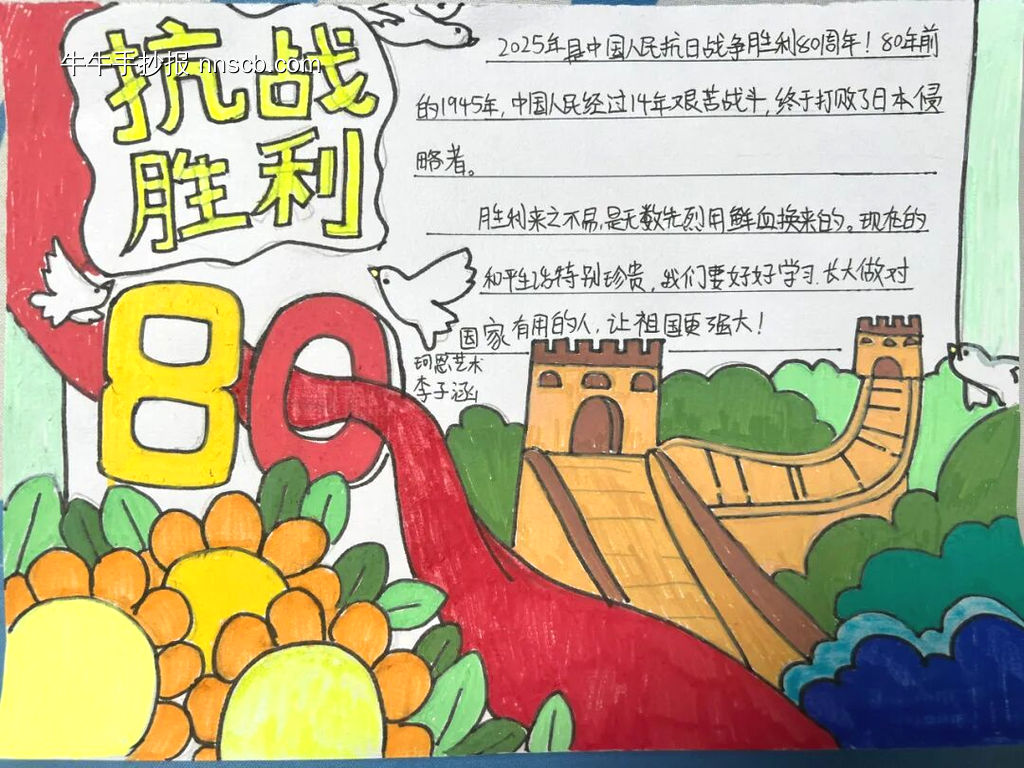 牛牛手抄报 nnscb.com
抗战
胜利
80
2025年是中国人民抗日战争胜利80周年！80年前
的1945年，中国人民经过14年艰苦战斗，终于打败了日本侵
略者。
胜利来之不易，是无数先烈用鲜血换来的。现在的
和平生活特别珍贵，我们要好好学习，长大做对
国家有用的人，让祖国更强大！
珂恩艺术
李子涵